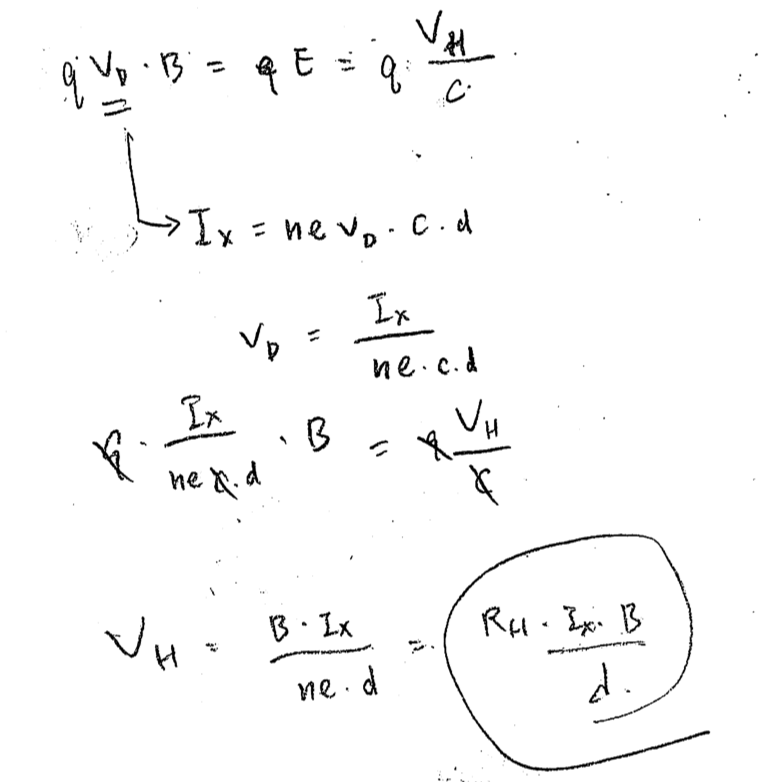 q V_D · B = q E = q · V_H / c
→ I_x = n e V_D · c · d
V_D = I_x / ne · c · d
q · I_x / ne c · d · B = q V_H / c
V_H = B · I_x / ne · d = R_H · I_x · B / d